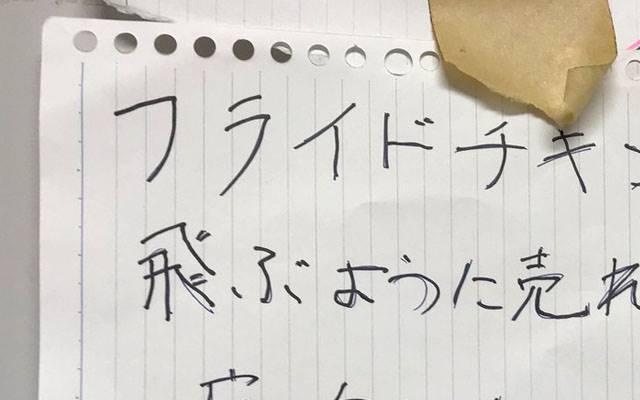 フライドチキ
飛ぶように売れ